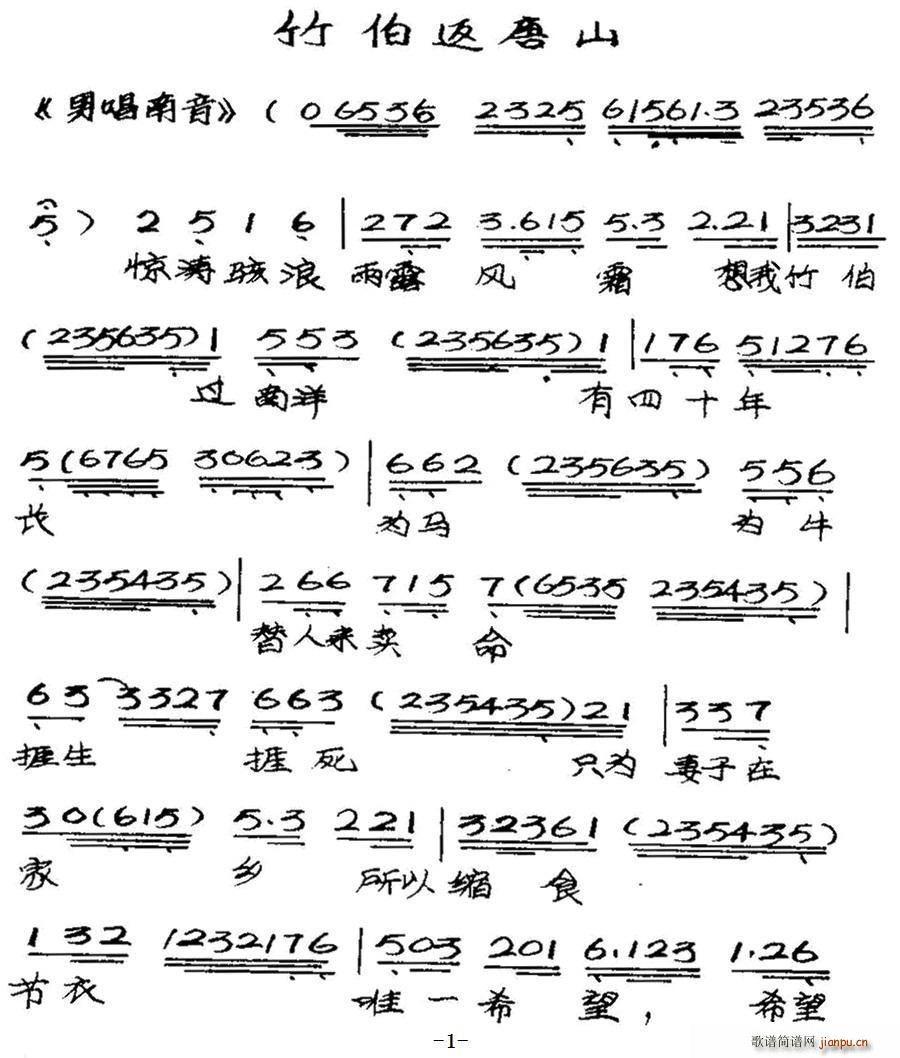 竹伯返唐山
《男唱南音》(0 6536 2325 61561.3 23536
5) 2 5 1 6 | 272 3.615 5.3 2.21 | 3231
惊涛骇浪 雨露 风 霜 想我竹伯
(235635)1 553 (235635)1 | 176 51276
过南洋 有四十年
5(6765 30623) | 662 (235635) 556
长 为马 为牛
(235435) | 266 715 7(6535 235435) |
替人来卖 命
63 3327 663 (235435)21 | 337
捱生 捱死 只为 妻子在
30(615) 5.3 221 | 32361 (235435)
家 乡 所以缩 食
132 1232176 | 503 201 6.123 1.26
节衣 唯一希 望，希望
-1-
歌谱简谱网
jianpu.cn